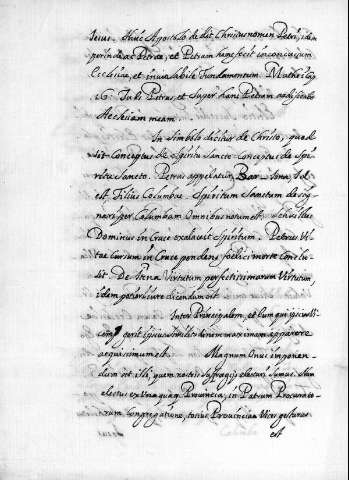 Jesus. Huic Apostolo dedit Christus nomen Petri, idem
perinde ac Petrae, et Petram hanc fecit inconcussum
Ecclesiae, et inviolabile Fundamentum Mathei Cap
16. Tu es Petrus, et super hanc Petram aedificabo
Aeclesiam meam.
In Simbolo dicitur de Christo, quod
sit Conceptus de Spiritu Sancto Conceptus de Spi-
ritu Sancto. Petrus appelatur Bar-Iona, id
est Filius Columbae. Spiritum Sanctum desig-
nari per Columbam omnibus notum est.
Dominus in Cruce exalavit Spiritum. Petrus Vi-
tae Cursum in Cruce pendens foelici morte conclu-
sit. De Virtutum perfectissimarum Virtutum,
idem pohoriure dicendum est
Inter Principalem, et Eum qui ipsius Vi-
cem gerit ipsius similitudinem maximam apparere
aequissimum est. Magnum Onus imponen-
dum est illi, quem nostris suffragiis electuri sumus. Nam
electus ex Unaquaq Provincia, in Patrum Procurato-
rum Congregatione, totius Provinciae Vices gesturus
est